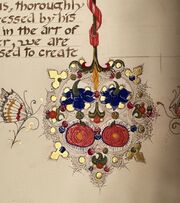 us, thoroughly
essed by his
in the art of
er, we are
sed to create